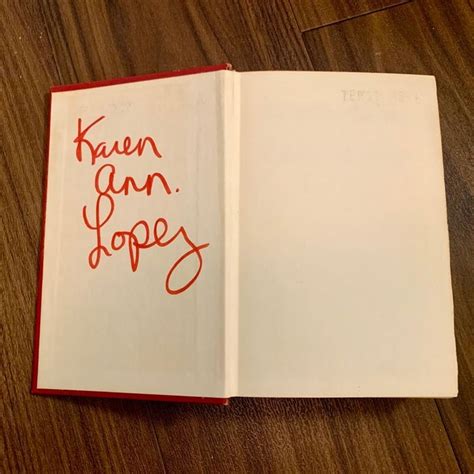 Karen
Ann.
Lopez